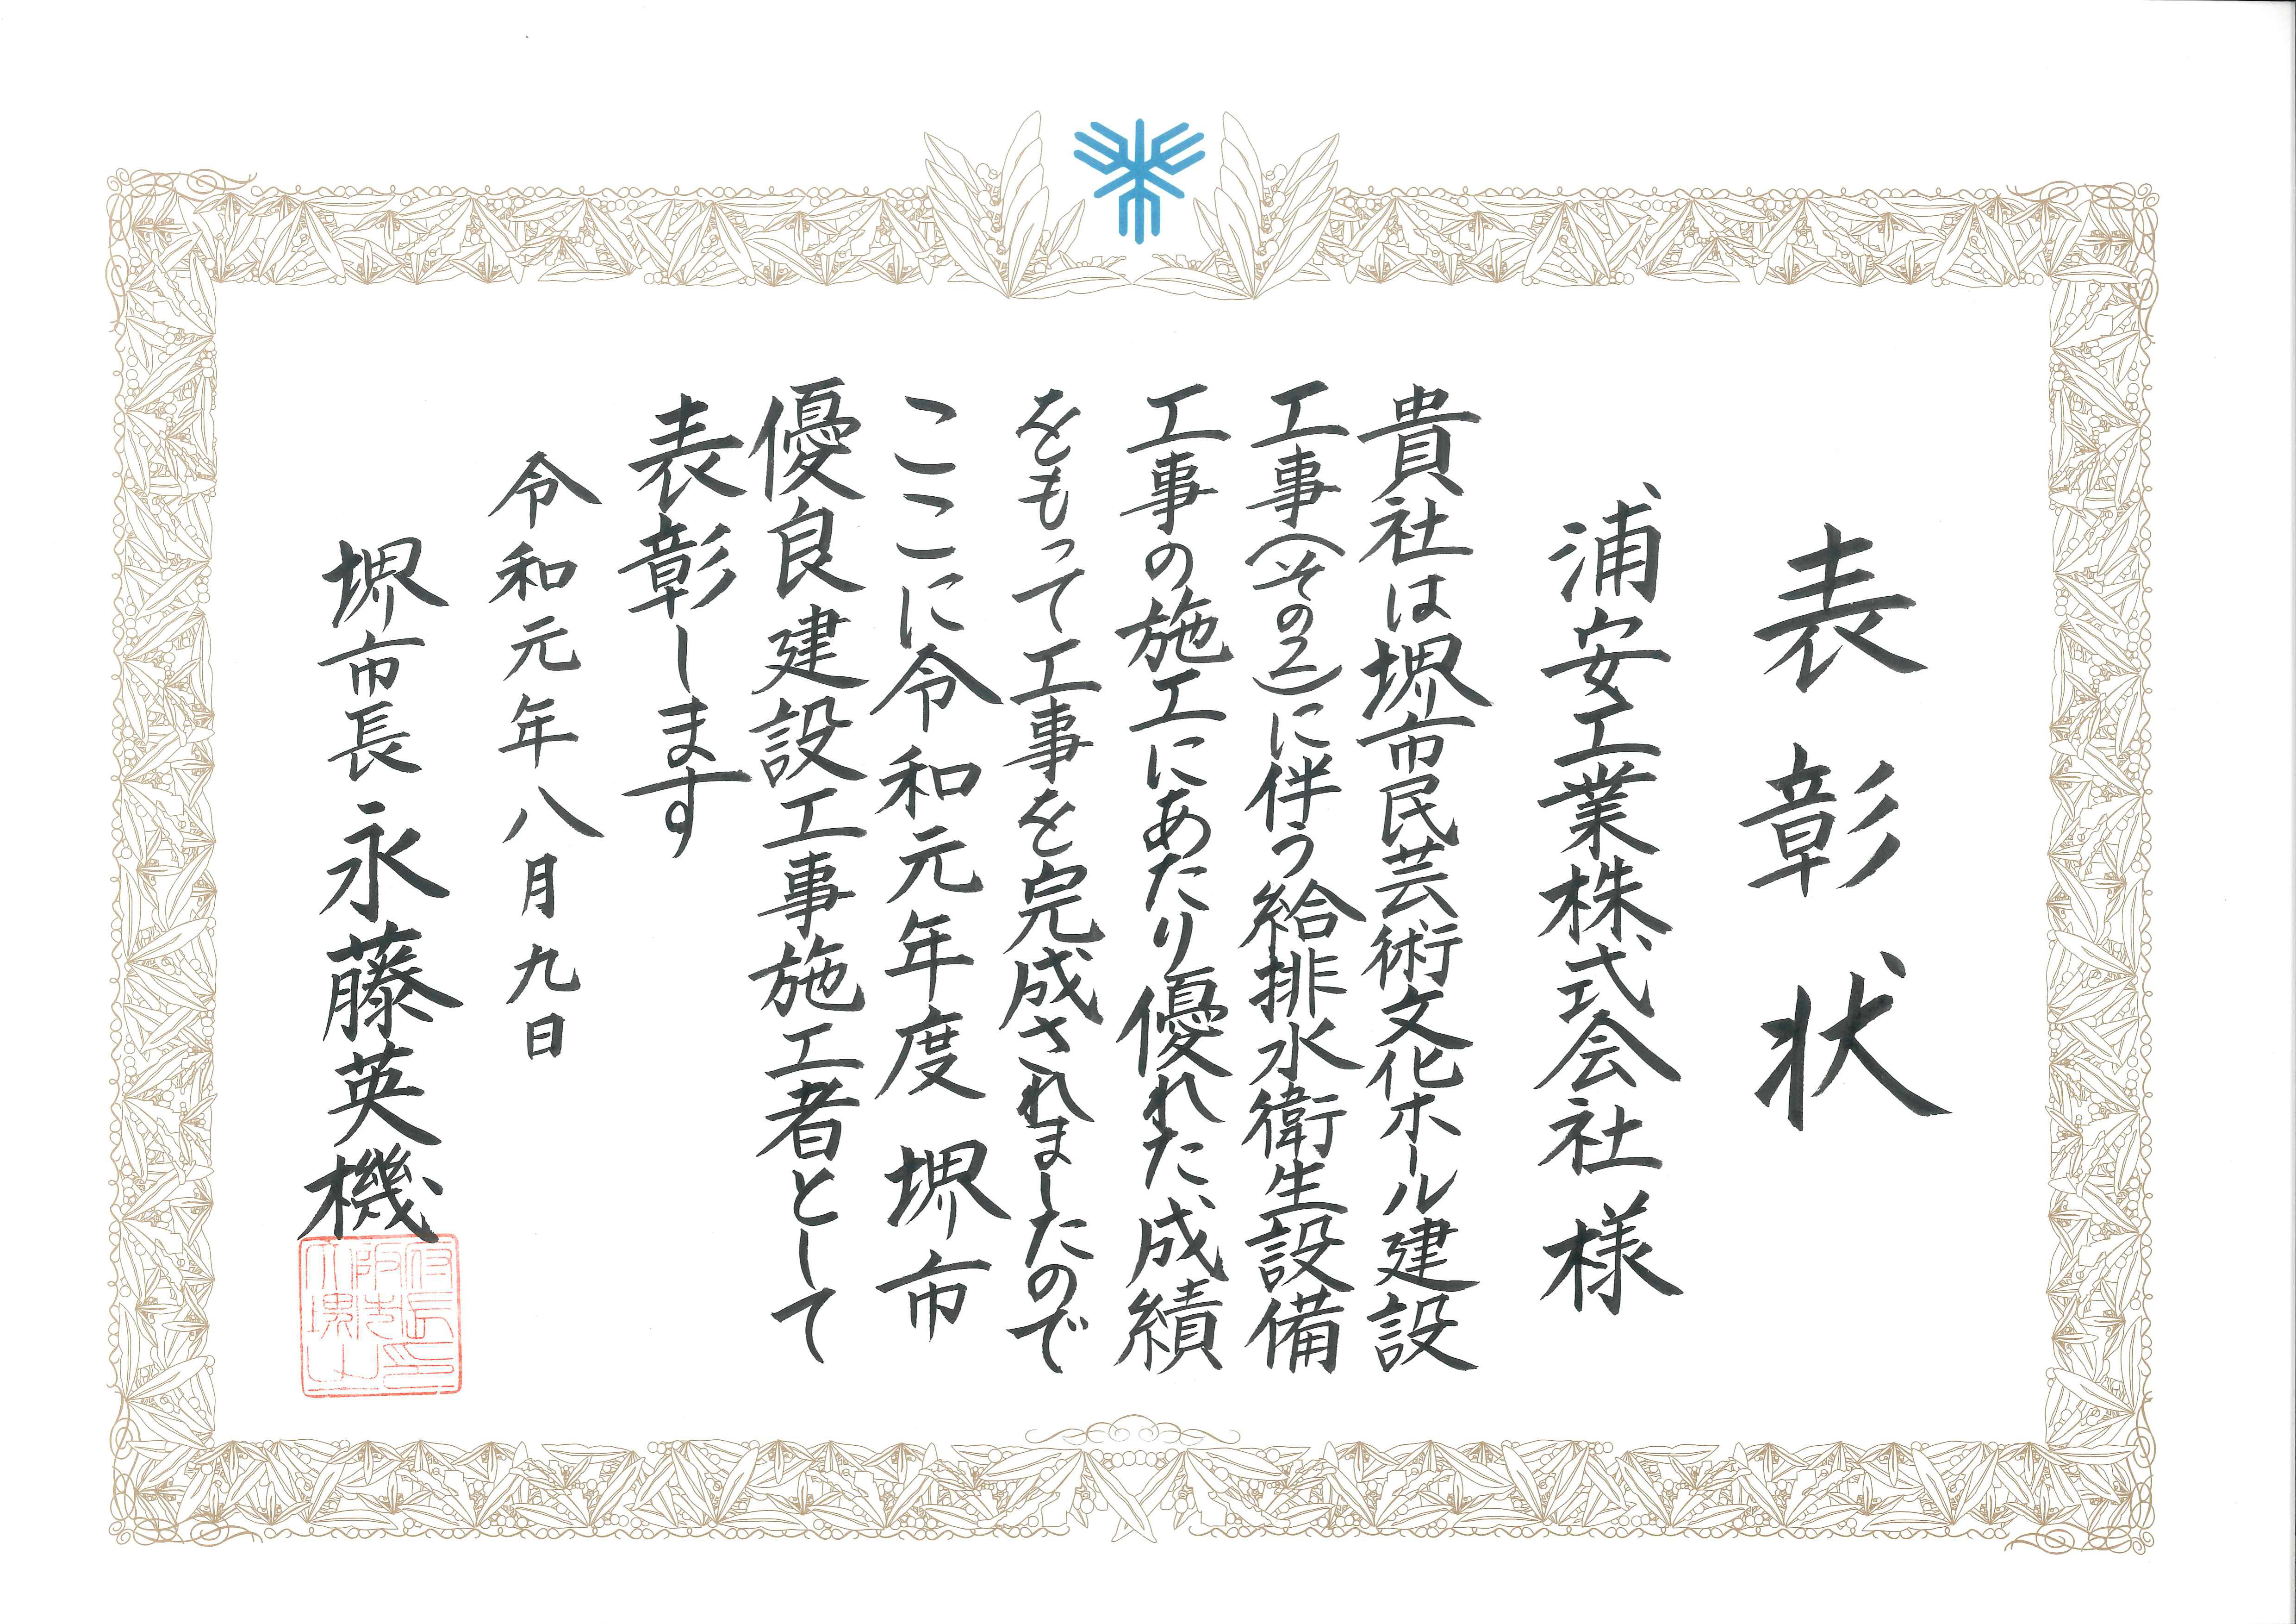 表彰状
浦安工業株式会社様
貴社は堺市民芸術文化ホール建設
工事(その2)に伴う給排水衛生設備
工事の施工にあたり優れた成績
をもって工事を完成されましたので
ここに令和元年度 堺市
優良建設工事施工者として
表彰します
令和元年八月九日
堺市長 永藤英機